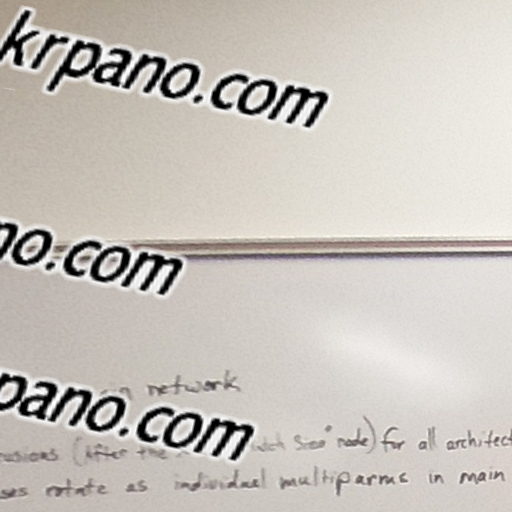 krpano.com
no.com
network
pano.com
(After the node) for all architect
ses rotate as individual multiparms in main